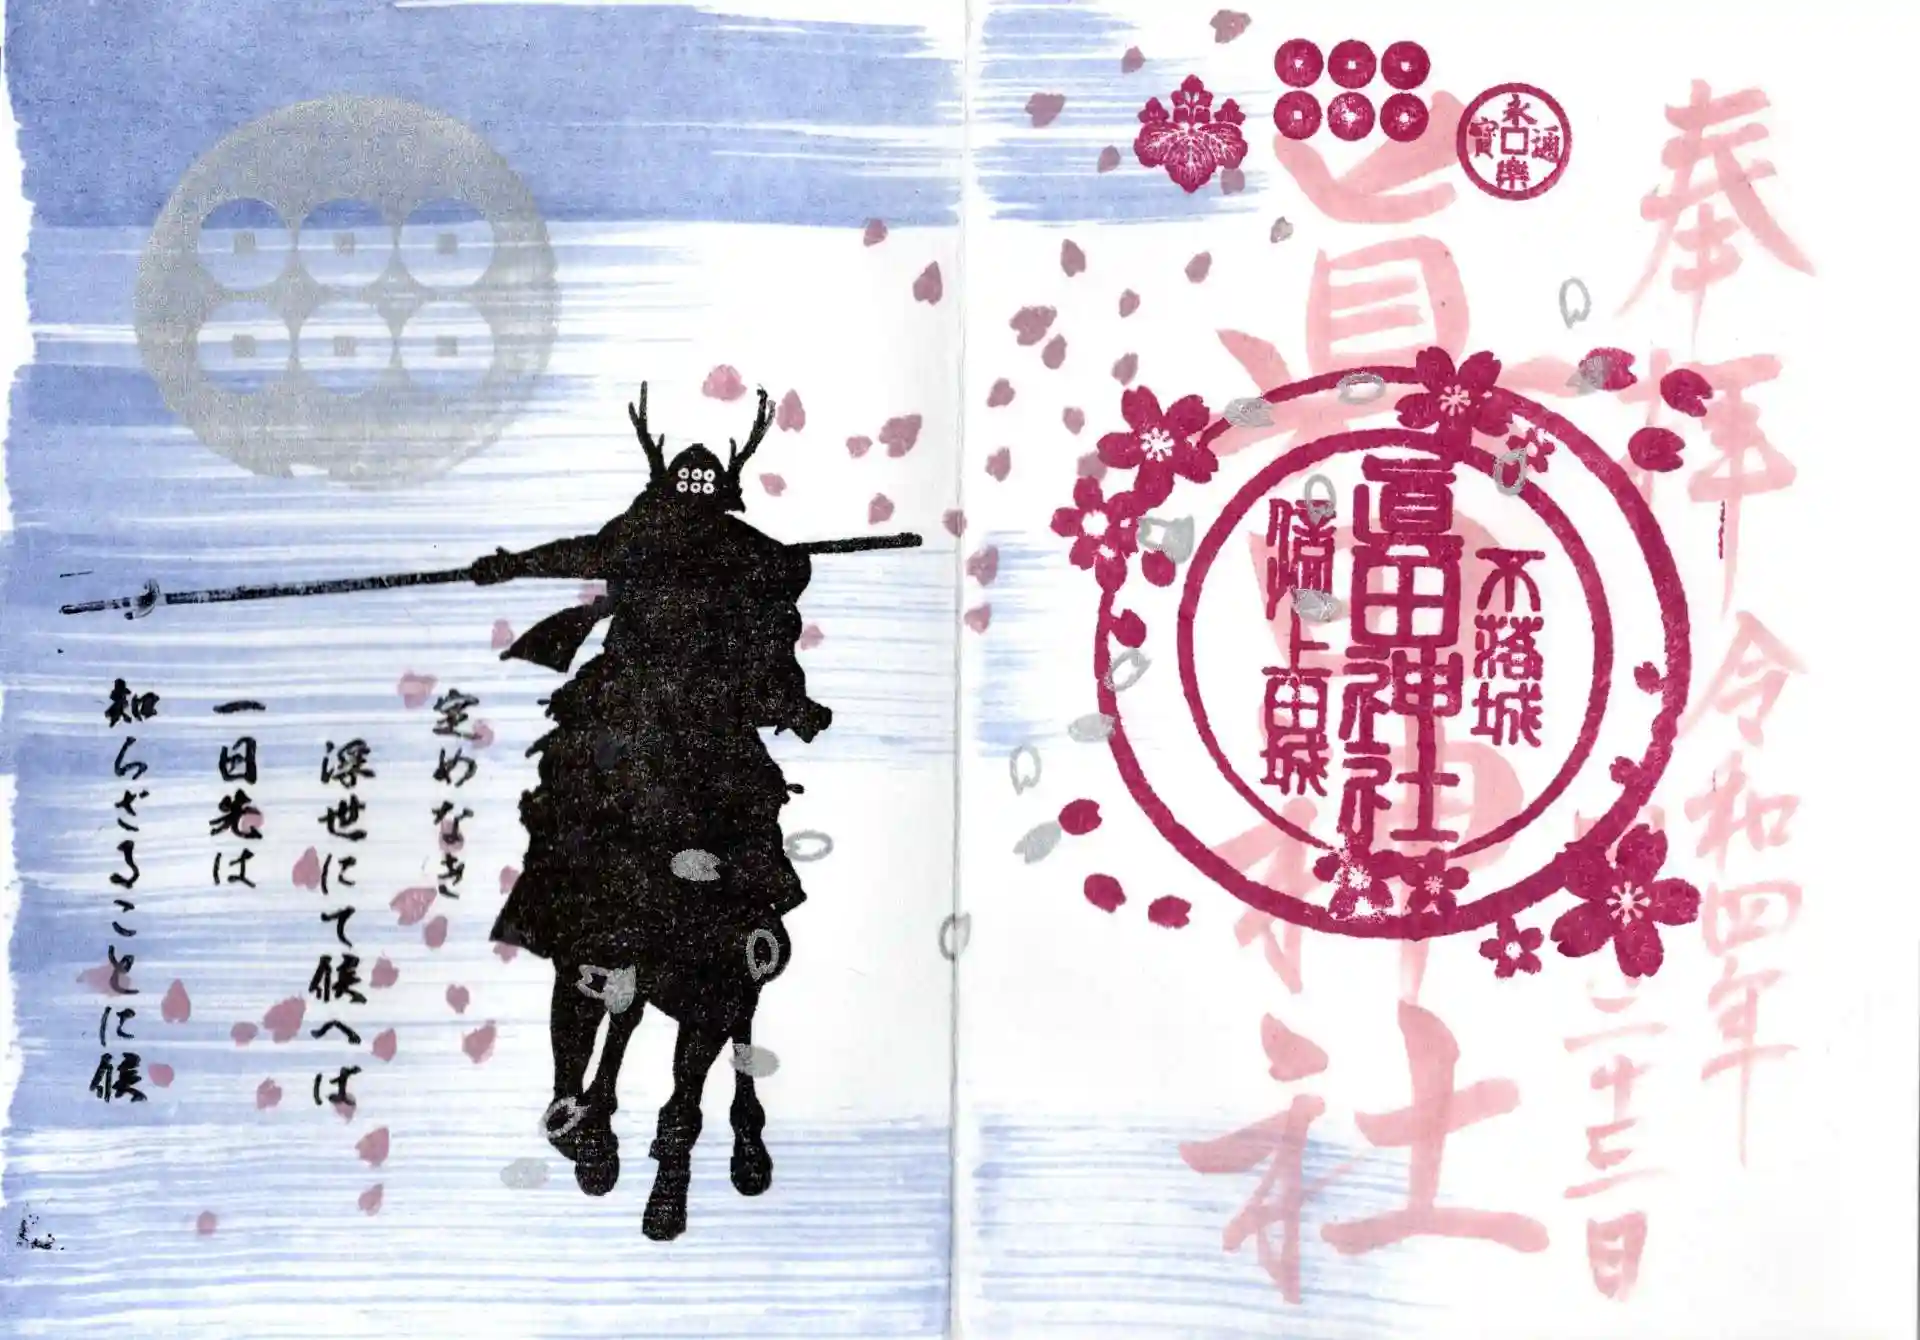 奉拝
令和四年
四月二十三日
眞田神社
永樂通寳
不落城
眞田神社
上田城
定めなき
浮世にて候へは
一日先は
知らざることに候